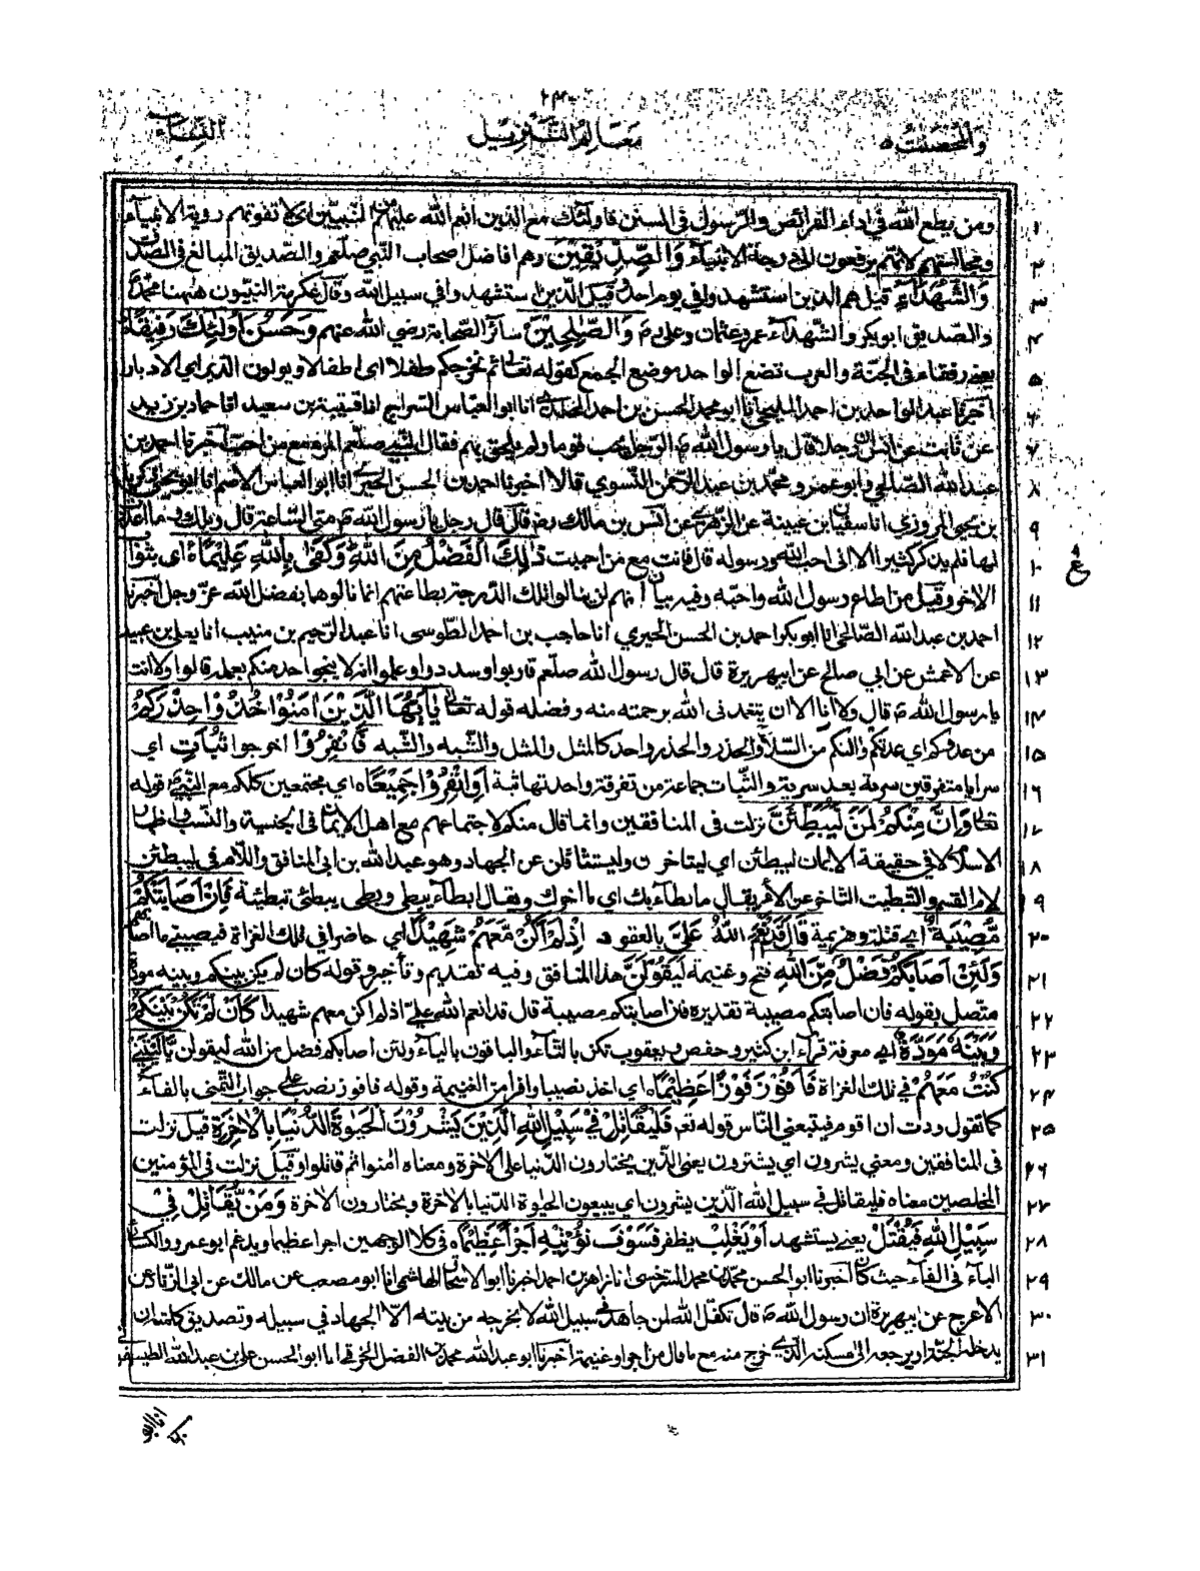 ٢٣٠
والمحصنت ٥ معالم التنزيل النساء
١ ومن يطع الله في اداء الفرائض والرسول في السنن فاولئك مع الذين انعم الله عليهم من النبيين اى لا تفوتهم روية الانبياء
٢ ومجالستهم لانهم يرفعون الى درجة الانبياء وَالصِّدِّيْقِيْنَ وهم افاضل اصحاب النبي صلعم والصديق المبالغ في الصدق
٣ وَالشُّهَدَاءِ قيل هم الذين استشهدوا في يوم احد وقيل الذين استشهدوا في سبيل الله وقال عكرمة النبيون ههنا محمد
٤ والصديق ابو بكر والشهداء عمر وعثمان وعلى رض وَالصّٰلِحِيْنَ سائر الصحابة رضي الله عنهم وَحَسُنَ اُولٰئِكَ رَفِيْقًا
٥ يعني رفقاء في الجنة والعرب تضع الواحد موضع الجمع كقوله تعالى ثم نخرجكم طفلا اى اطفالا ويولون الدبر اي الادبار
٦ اخبرنا عبد الواحد بن احمد المليحي انا ابو محمد الحسن بن احمد المخلدي انا ابو العباس السراج انا قتيبة بن سعيد انا حماد بن زيد
٧ عن ثابت عن انس ان رجلا قال يا رسول الله ص الرجل يحب قوما ولم يلحق بهم فقال النبي صلعم المرء مع من احب اخبرنا احمد بن
٨ عبد الله الصالحي وابو عمرو محمد بن عبد الرحمن النسوي قالا اخبرنا احمد بن الحسن الحيري انا ابو العباس الاصم انا ابو يحيى زكريا
٩ بن يحيى المروزي انا سفيان بن عيينة عن الزهري عن انس بن مالك رض قال قال رجل يا رسول الله ص متى الساعة قال ويلك وما اعددت
١٠ لها فلم يذكر كثيرا الا انى احب الله ورسوله قال فانت مع من احببت ذٰلِكَ الْفَضْلُ مِنَ اللّٰهِ وَكَفٰى بِاللّٰهِ عَلِيْمًا اى بثواب
١١ الاخرة وقيل من اطاع رسول الله واحبه وفيه بيان انهم لن ينالوا تلك الدرجة بطاعتهم انما نالوها بفضل الله عز وجل اخبرنا
١٢ احمد بن عبد الله الصالحي انا ابو بكر احمد بن الحسن الحيري انا حاجب بن احمد الطوسى انا عبد الرحيم بن منيب انا يعلى بن عبيد
١٣ عن الاعمش عن ابي صالح عن ابي هريرة قال قال رسول الله صلعم قاربوا وسددوا واعلموا انه لا ينجوا احد منكم بعمله قالوا ولا انت
١٤ يا رسول الله ص قال ولا انا الا ان يتغمدنى الله برحمته منه وفضله قوله تعالى يٰاَيُّهَا الَّذِيْنَ اٰمَنُوْا خُذُوْا حِذْرَكُمْ
١٥ من عدوكم اي عدتكم والتكم من السلاح والحذر والحذر واحد كالمثل والمثل والشبه والشبه فَانْفِرُوْا اخرجوا ثُبَاتٍ اي
١٦ سرايا متفرقين سرية بعد سرية والثبات جماعة من تفرقة واحدتها ثبة اَوِ انْفِرُوْا جَمِيْعًا اي مجتمعين كلكم مع النبي ص قوله
١٧ تعالى وَاِنَّ مِنْكُمْ لَمَنْ لَّيُبَطِّئَنَّ نزلت في المنافقين وانما قال منكم لاجتماعهم مع اهل الايمان في الجنسية والنسب واظهار
١٨ الاسلام لا في حقيقة الايمان ليبطئن اي ليتاخرن وليتثاقلن عن الجهاد وهو عبد الله بن ابى المنافق واللام في ليبطئن
١٩ لام القسم والتبطيت التاخر عن الامر يقال ما بطاءبك اي ما اخرك ويقال ابطاء يبطي وبطى يبطئ تبطئية فَاِنْ اَصَابَتْكُمْ
٢٠ مُّصِيْبَةٌ اي قتل وهزيمة قَالَ قَدْ اَنْعَمَ اللّٰهُ عَلَيَّ بالعقود اِذْ لَمْ اَكُنْ مَّعَهُمْ شَهِيْدًا اي حاضرا في تلك الغزاة فيصيبني ما اصابهم
٢١ وَلَئِنْ اَصَابَكُمْ فَضْلٌ مِّنَ اللّٰهِ فتح وغنيمة لَيَقُوْلَنَّ هذا المنافق وفيه تقديم وتأخير وقوله كان لم يكن بينكم وبينه مودة
٢٢ متصل بقوله فان اصابتكم مصيبة تقديره فان اصابتكم مصيبة قال قد انعم الله علي اذ لم اكن معهم شهيدا كَاَنْ لَّمْ تَكُنْ بَيْنَكُمْ
٢٣ وَبَيْنَهٗ مَوَدَّةٌ اي معرفة قراء ابن كثير وحفص ويعقوب تكن بالتاء والباقون بالياء ولئن اصابكم فضل من الله ليقولن يّٰلَيْتَنِيْ
٢٤ كُنْتُ مَعَهُمْ في تلك الغزاة فَاَفُوْزَ فَوْزًا عَظِيْمًا اي اخذ نصيبا وافرا من الغنيمة وقوله فافوز نصب على جواب التمنى بالفاء
٢٥ كما تقول وددت ان اقوم فيتبعني الناس قوله تعم فَلْيُقَاتِلْ فِيْ سَبِيْلِ اللّٰهِ الَّذِيْنَ يَشْرُوْنَ الْحَيٰوةَ الدُّنْيَا بِالْاٰخِرَةِ قيل نزلت
٢٦ في المنافقين ومعني يشرون اي يشترون يعني الذين يختارون الدنيا على الاخرة ومعناه امنوا ثم قاتلوا وقيل نزلت في المؤمنين
٢٧ المخلصين معناه فليقاتل في سبيل الله الذين يشرون اي يبيعون الحيوة الدنيا بالاخرة ويختارون الاخرة وَمَنْ يُّقَاتِلْ فِيْ
٢٨ سَبِيْلِ اللّٰهِ فَيُقْتَلْ يعني يستشهد اَوْ يَغْلِبْ يظفر فَسَوْفَ نُؤْتِيْهِ اَجْرًا عَظِيْمًا في كلا الوجهين اجرا عظيما ويدغم ابو عمرو والكسائي
٢٩ الباء في الفاء حيث كان اخبرنا ابو الحسن محمد بن محمد السرخسي انا زاهر بن احمد اخبرنا ابو الاسحاق الهاشمي انا ابو مصعب عن مالك عن ابي الزناد عن
٣٠ الاعرج عن ابي هريرة ان رسول الله ص قال تكفل الله لمن جاهد في سبيل الله لا يخرجه من بيته الا الجهاد في سبيله وتصديق كلمته ان
٣١ يدخله الجنة او يرجعه الى مسكنه الذي خرج منه مع ما قال من اجر او غنيمة اخبرنا ابو عبد الله محمد بن الفضل الخرقي انا ابو الحسن على بن عبد الله الطيسفوني
ع